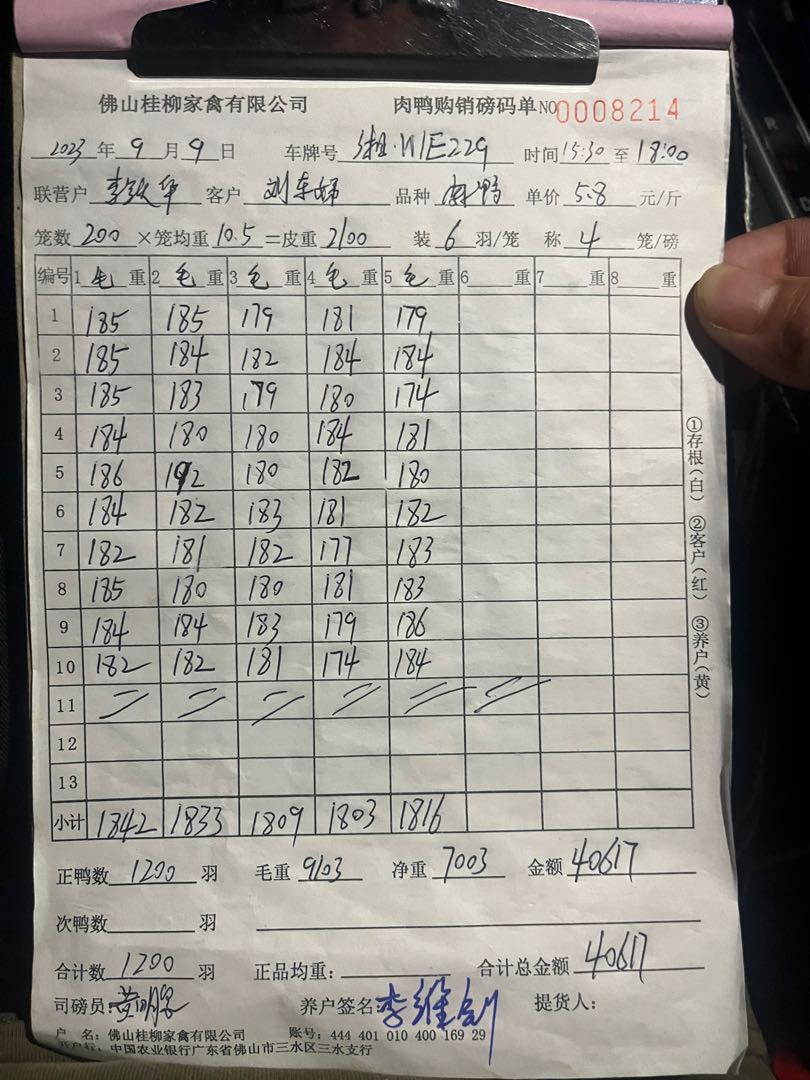 佛山桂柳家禽有限公司 肉鸭购销磅码单 NO 0008214
2023年9月9日 车牌号 湘·W1E229 时间15:30至18:00
联营户 客户 品种 麻鸭 单价 5.8 元/斤
笼数 200 ×笼均重 10.5 =皮重 2100 装 6 羽/笼 称 4 笼/磅
编号 1毛重 2毛重 3毛重 4毛重 5毛重 6 重 7 重 8 重
1 185 185 179 181 179
2 185 184 182 184 184
3 185 183 179 180 174
4 184 180 180 184 181
5 186 192 180 182 180
6 184 182 183 181 182
7 182 181 182 177 183
8 185 180 180 181 183
9 184 184 183 179 186
10 182 182 181 174 184
11
12
13
小计 1842 1833 1809 1803 1816
正鸭数 1200 羽 毛重 9103 净重 7003 金额 40617
次鸭数 羽
合计数 1200 羽 正品均重: 合计总金额 40617
司磅员: 养户签名: 李维剑 提货人:
户 名: 佛山桂柳家禽有限公司 账号: 444 401 010 400 169 29
开户行: 中国农业银行广东省佛山市三水区三水支行
①存根(白) ②客户(红) ③养户(黄)